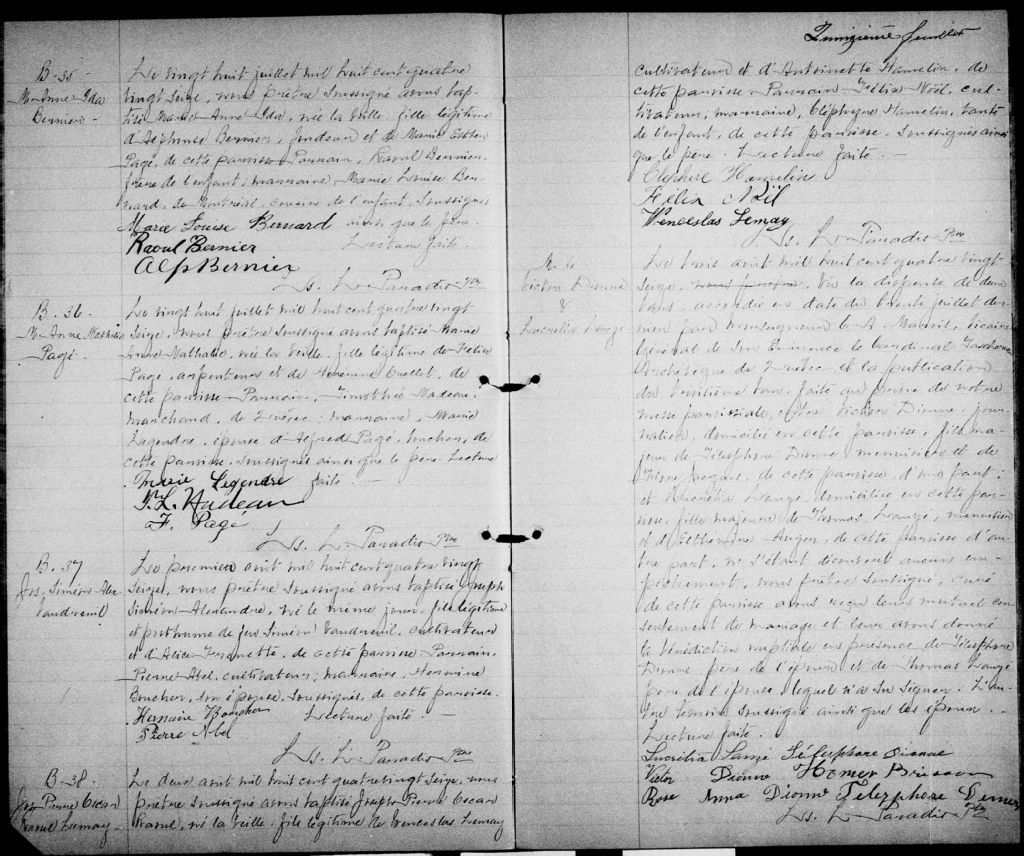 B-35
M. Anne Ida
Bernier
Le vingt huit juillet mil huit cent quatre
vingt seize, nous prêtre soussigné avons bap-
tisé Marie Anne Ida, née la veille, fille légitime
d'Alphonse Bernier, et de Marie Esther
Pagé, de cette paroisse Parrain, Raoul Bernier
frère de l'enfant; marraine, Marie Louise Ber-
nard, de Montréal, cousine de l'enfant, soussignés
ainsi que le père.
Lecture faite.
Marie Louise Bernard
Raoul Bernier
Alp Bernier
Ls. L. Paradis Ptre
B-36
M. Anne Nathalie
Pagé
Le vingt huit juillet mil huit cent quatre vingt
seize, nous prêtre soussigné avons baptisé Marie
Anne Nathalie, née la veille, fille légitime de Félix
Pagé, arpenteur et de Ouellet, de
cette paroisse Parrain, Timothée Nadeau,
marchand, de Québec; marraine, Marie
Legendre, épouse d'Alfred Pagé, boucher, de
cette paroisse, soussignés ainsi que le père. Lecture
faite.
Marie Legendre
T. L. Nadeau
F. Pagé
Ls. L. Paradis Ptre
B-37
Jos. Siméon Alex.
Vaudreuil
Le premier août mil huit cent quatre vingt
seize, nous prêtre soussigné avons baptisé Joseph
Siméon Alexandre, né le même jour, fils légitime
et posthume de feu Siméon Vaudreuil, cultivateur
et d'Alice de cette paroisse Parrain
Pierre Abel, cultivateur; marraine, Hermine
Boucher, son épouse, soussignés, de cette paroisse.
Lecture faite.
Boucher
Pierre Abel
Ls. L. Paradis Ptre
B-38
Jos. Pierre Oscar
Raoul Lemay
Le deux août mil huit cent quatre vingt seize, nous
prêtre soussigné avons baptisé Joseph Pierre Oscar
Raoul, né la veille, fils légitime de Wenceslas Lemay
feuillet
cultivateur et d'Antoinette Hamelin, de
cette paroisse Parrain Félix Noël, cul-
tivateur, marraine, Cléophire Hamelin, tante
de l'enfant, de cette paroisse, soussignés ainsi
que le père. Lecture faite.
Cléphire Hamelin
Félix Noël
Wenceslas Lemay
Ls. L. Paradis Ptre
M. 6
Victor Dionne
&
Lucrétia Langé
Le trois août mil huit cent quatre vingt
seize, Vu la dispense de deux
bans, accordée en date du trente juillet der-
nier par Monseigneur C. A. Marois, vicaire
Général de Son Éminence le Cardinal Taschereau
Archevêque de Québec, et la publication
du troisième ban, faite au prône de notre
messe paroissiale, entre Victor Dionne, jour-
nalier, domicilié en cette paroisse, fils ma-
jeur de Télesphore Dionne menuisier et de
Jacques, de cette paroisse d'une part;
et Lucrétia Langé, domiciliée en cette pa-
roisse, fille majeure de Thomas Langé, menuisier
et d' Auger, de cette paroisse d'au-
tre part, ne s'étant découvert aucun em-
pêchement, nous prêtre soussigné, curé
de cette paroisse avons reçu leur mutuel con-
sentement de mariage et leur avons donné
la bénédiction nuptiale en présence de Télesphore
Dionne, père de l'époux et de Thomas Langé
père de l'épouse lequel n'a su signer. L'au-
tre témoin soussigné ainsi que les époux.
Lecture faite.
Lucrétia Langé Télesphore Dionne
Victor Dionne Homer Brisson
Rose Anna Dionne Télesphore
Ls. L. Paradis Ptre